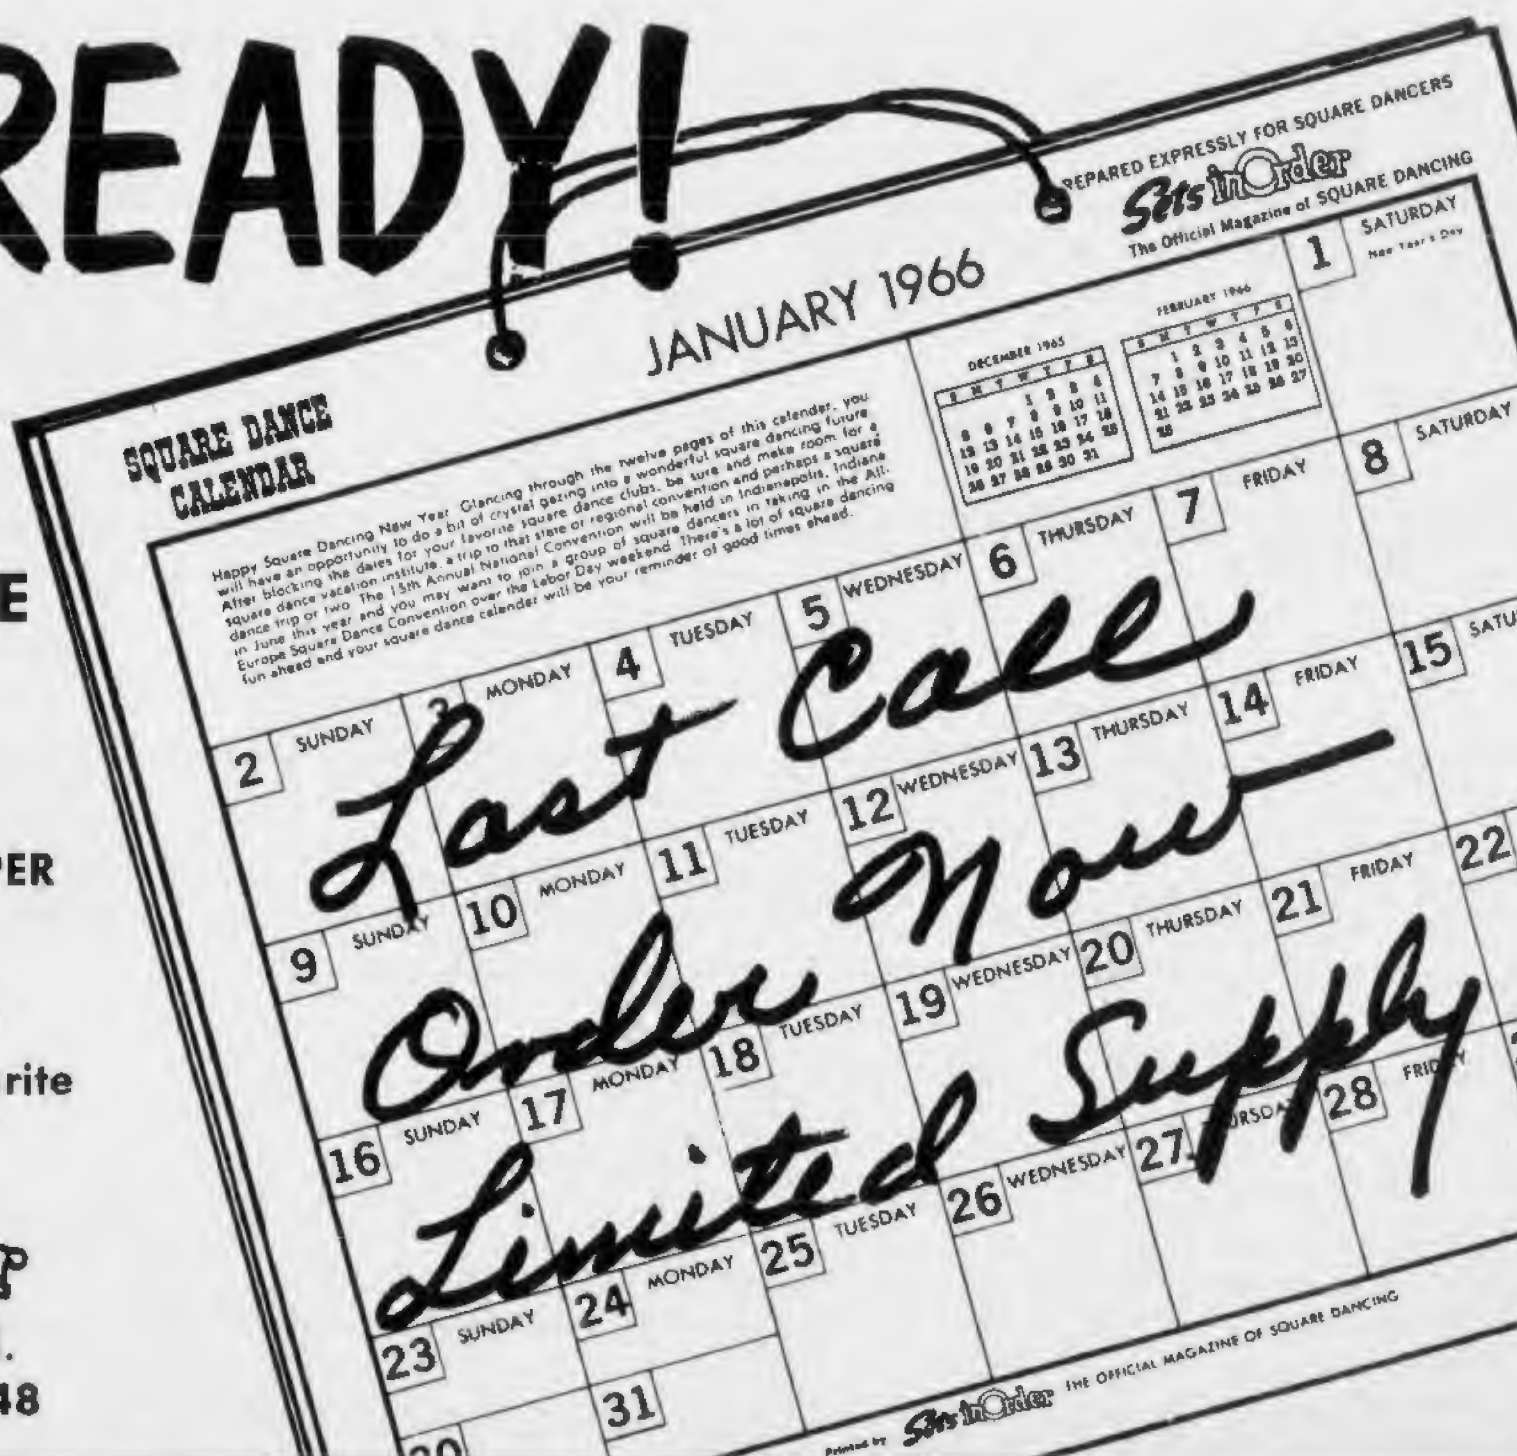 READY!
PREPARED EXPRESSLY FOR SQUARE DANCERS
Sets inOrder
The Official Magazine of SQUARE DANCING
JANUARY 1966
SQUARE DANCE
CALENDAR
Happy Square Dancing New Year. Glancing through the twelve pages of this calender, you
will have an opportunity to do a bit of crystal gazing into a wonderful square dancing future
After blocking the dates for your favorite square dance clubs, be sure and make room for a
square dance vacation institute, a trip to that state or regional convention and perhaps a square
dance trip or two. The 15th Annual National Convention will be held in Indianapolis, Indiana
in June this year and you may want to join a group of square dancers in taking in the All-
Europe Square Dance Convention over the Labor Day weekend. There's a lot of square dancing
fun ahead and your square dance calendar will be your reminder of good times ahead.
DECEMBER 1965
S M T W T F S
1 2 3 4
5 6 7 8 9 10 11
12 13 14 15 16 17 18
19 20 21 22 23 24 25
26 27 28 29 30 31
FEBRUARY 1966
S M T W T F S
1 2 3 4 5 6
7 8 9 10 11 12 13
14 15 16 17 18 19 20
21 22 23 24 25 26 27
28
1 SATURDAY
New Year's Day
2 SUNDAY 3 MONDAY 4 TUESDAY 5 WEDNESDAY 6 THURSDAY 7 FRIDAY 8 SATURDAY
Last Call
9 SUNDAY 10 MONDAY 11 TUESDAY 12 WEDNESDAY 13 THURSDAY 14 FRIDAY 15 SATU
Order Now
16 SUNDAY 17 MONDAY 18 TUESDAY 19 WEDNESDAY 20 THURSDAY 21 FRIDAY 22
Limited Supply
23 SUNDAY 24 MONDAY 25 TUESDAY 26 WEDNESDAY 27 THURSDAY 28 FRIDAY
30 31
Printed by Sets inOrder THE OFFICIAL MAGAZINE OF SQUARE DANCING
E
PER
rite
48